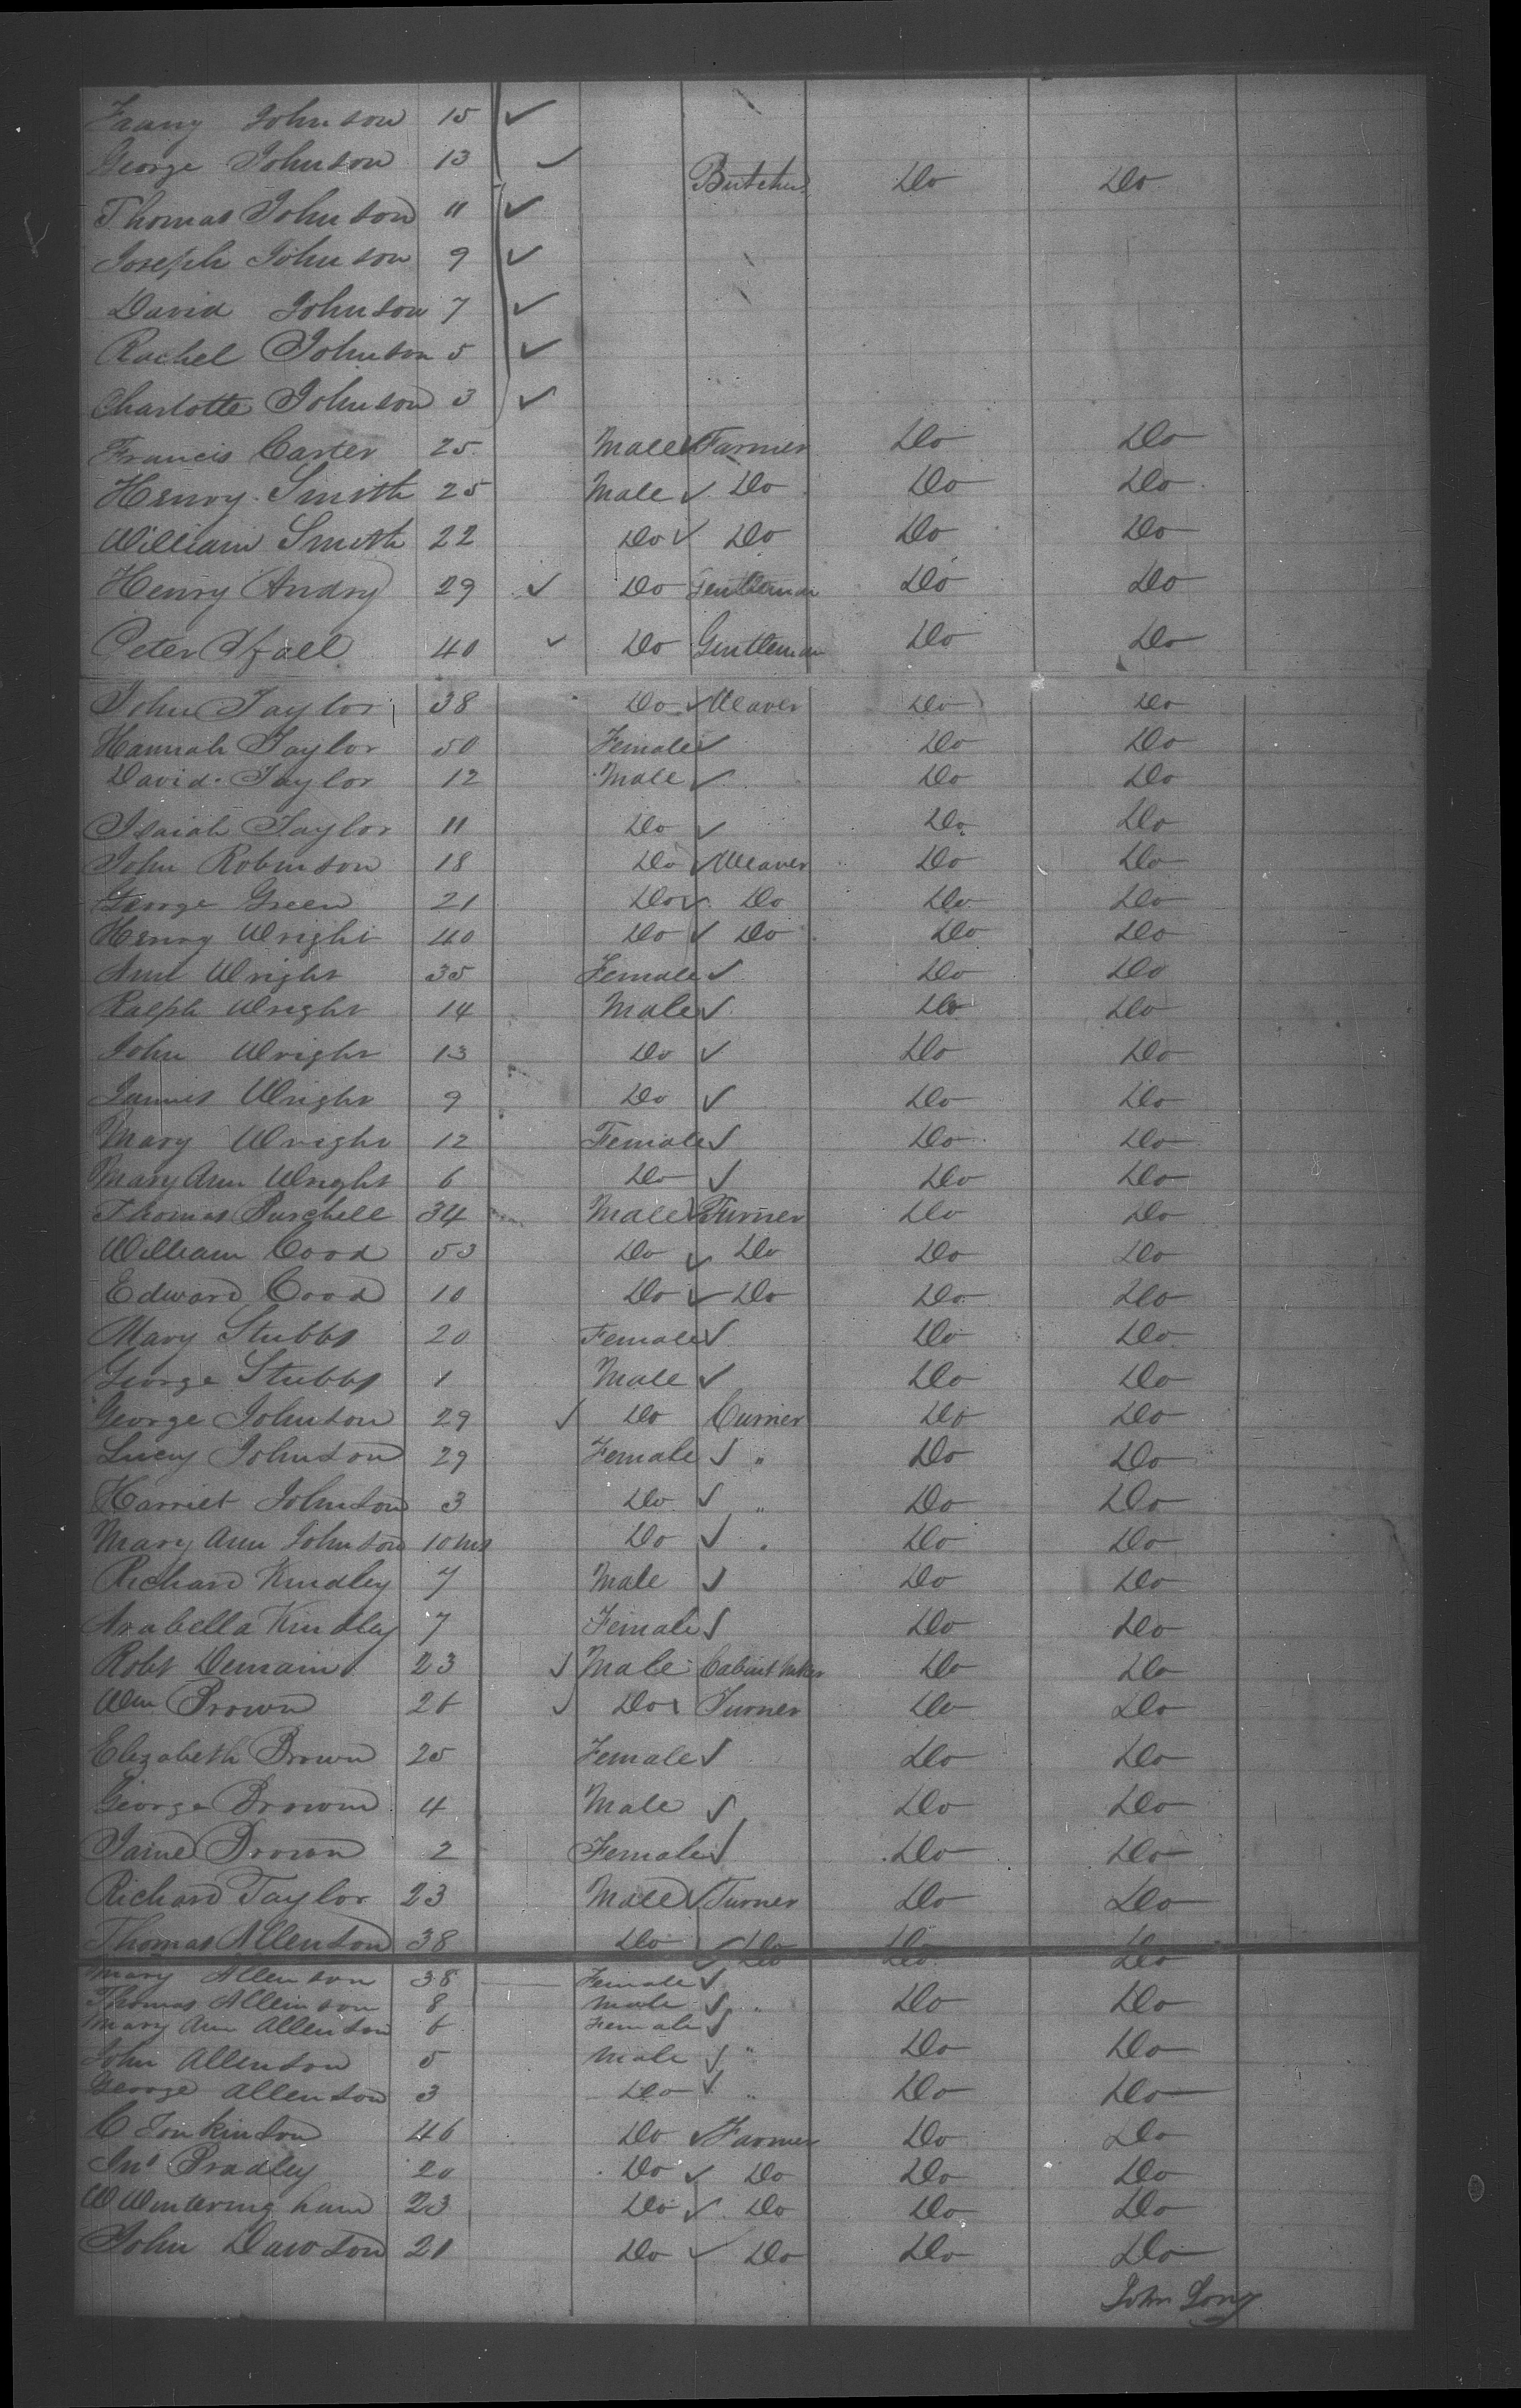 Fanny Johnson 15 ✓
George Johnson 13 ✓ Butcher Do Do
Thomas Johnson 11 ✓
Joseph Johnson 9 ✓
David Johnson 7 ✓
Rachel Johnson 5 ✓
Charlotte Johnson 3 ✓
Francis Carter 25 Male ✓ Farmer Do Do
Henry Smith 25 Male ✓ Do Do Do
William Smith 22 Do ✓ Do Do Do
Henry Andry 29 ✓ Do Gentleman Do Do
Peter 40 ✓ Do Gentleman Do Do
John Taylor 38 Do ✓ Weaver Do Do
Hannah Taylor 50 Female ✓ Do Do
David Taylor 12 Male ✓ Do Do
Isaiah Taylor 11 Do ✓ Do Do
John Robinson 18 Do ✓ Weaver Do Do
George Green 21 Do ✓ Do Do Do
Henry Wright 40 Do ✓ Do Do Do
Ann Wright 35 Female ✓ Do Do
Ralph Wright 14 Male ✓ Do Do
John Wright 13 Do ✓ Do Do
James Wright 9 Do ✓ Do Do
Mary Wright 12 Female ✓ Do Do
Mary Ann Wright 6 Do ✓ Do Do
Thomas Burchell 34 Male ✓ Turner Do Do
William Cood 53 Do ✓ Do Do Do
Edward Cood 10 Do ✓ Do Do Do
Mary Stubbs 20 Female ✓ Do Do
George Stubbs 1 Male ✓ Do Do
George Johnson 29 ✓ Do Currier Do Do
Lucy Johnson 29 Female ✓ " Do Do
Harriet Johnson 3 Do ✓ " Do Do
Mary Ann Johnson 10 ms Do ✓ " Do Do
Richard Kindley 7 Male ✓ Do Do
Arabella Kindley 7 Female ✓ Do Do
Robt Demain 23 ✓ Male Cabinet Maker Do Do
Wm Brown 26 ✓ Do Turner Do Do
Elizabeth Brown 25 Female ✓ Do Do
George Brown 4 Male ✓ Do Do
Jaine Brown 2 Female ✓ Do Do
Richard Taylor 23 Male ✓ Turner Do Do
Thomas Allenson 38 Do ✓ Do Do Do
Mary Allenson 38 Female ✓
Thomas Allenson 8 Male ✓ " Do Do
Mary Ann Allenson 6 Female ✓
John Allenson 5 Male ✓ " Do Do
George Allenson 3 Do ✓ " Do Do
C Tonkinson 46 Do ✓ Farmer Do Do
Jno Bradley 20 Do ✓ Do Do Do
W Winteringham 23 Do ✓ Do Do Do
John Dawson 21 Do ✓ Do Do Do
John Long